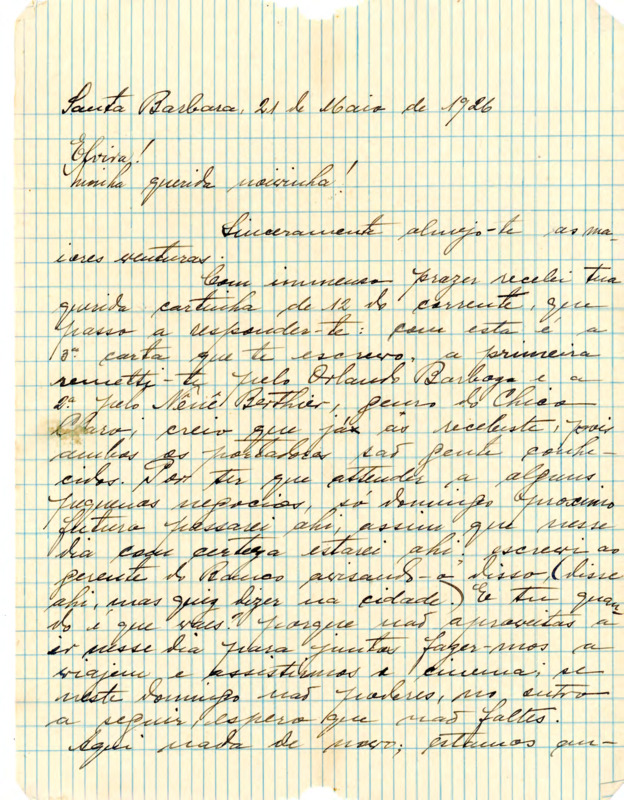 Santa Barbara, 21 de Maio de 1926
Elvira!
minha querida noivinha!
Sinceramente almejo-te as ma-
iores venturas.
Com immenso prazer recebi tua
querida cartinha de 12 do corrente, que
passo a responder-te: com esta é a
3ª carta que te escrevo, a primeira
remetti-te pelo Orlando Barboza e a
2ª pelo Nênê Berthier, genro do Chico
Claro; creio que já as recebeste, pois
ambos os portadores saõ gente conhe-
cidos. Por ter que attender a alguns
pequenos negocios, só domingo proximo
futuro passarei ahi, assim que nesse
dia com certeza estarei ahi. escrevi ao
gerente do Banco avisando-o disso, (disse
ahi, mas quiz dizer na cidade.) E tu quan-
do é que vaes? porque naõ aproveitas a
ir nesse dia para juntos fazer-mos a
viajem e assistirmos o cinema; se
neste domingo naõ poderes, no outro
a seguir espero que naõ faltes.
Aqui nada de novo; estamos an-